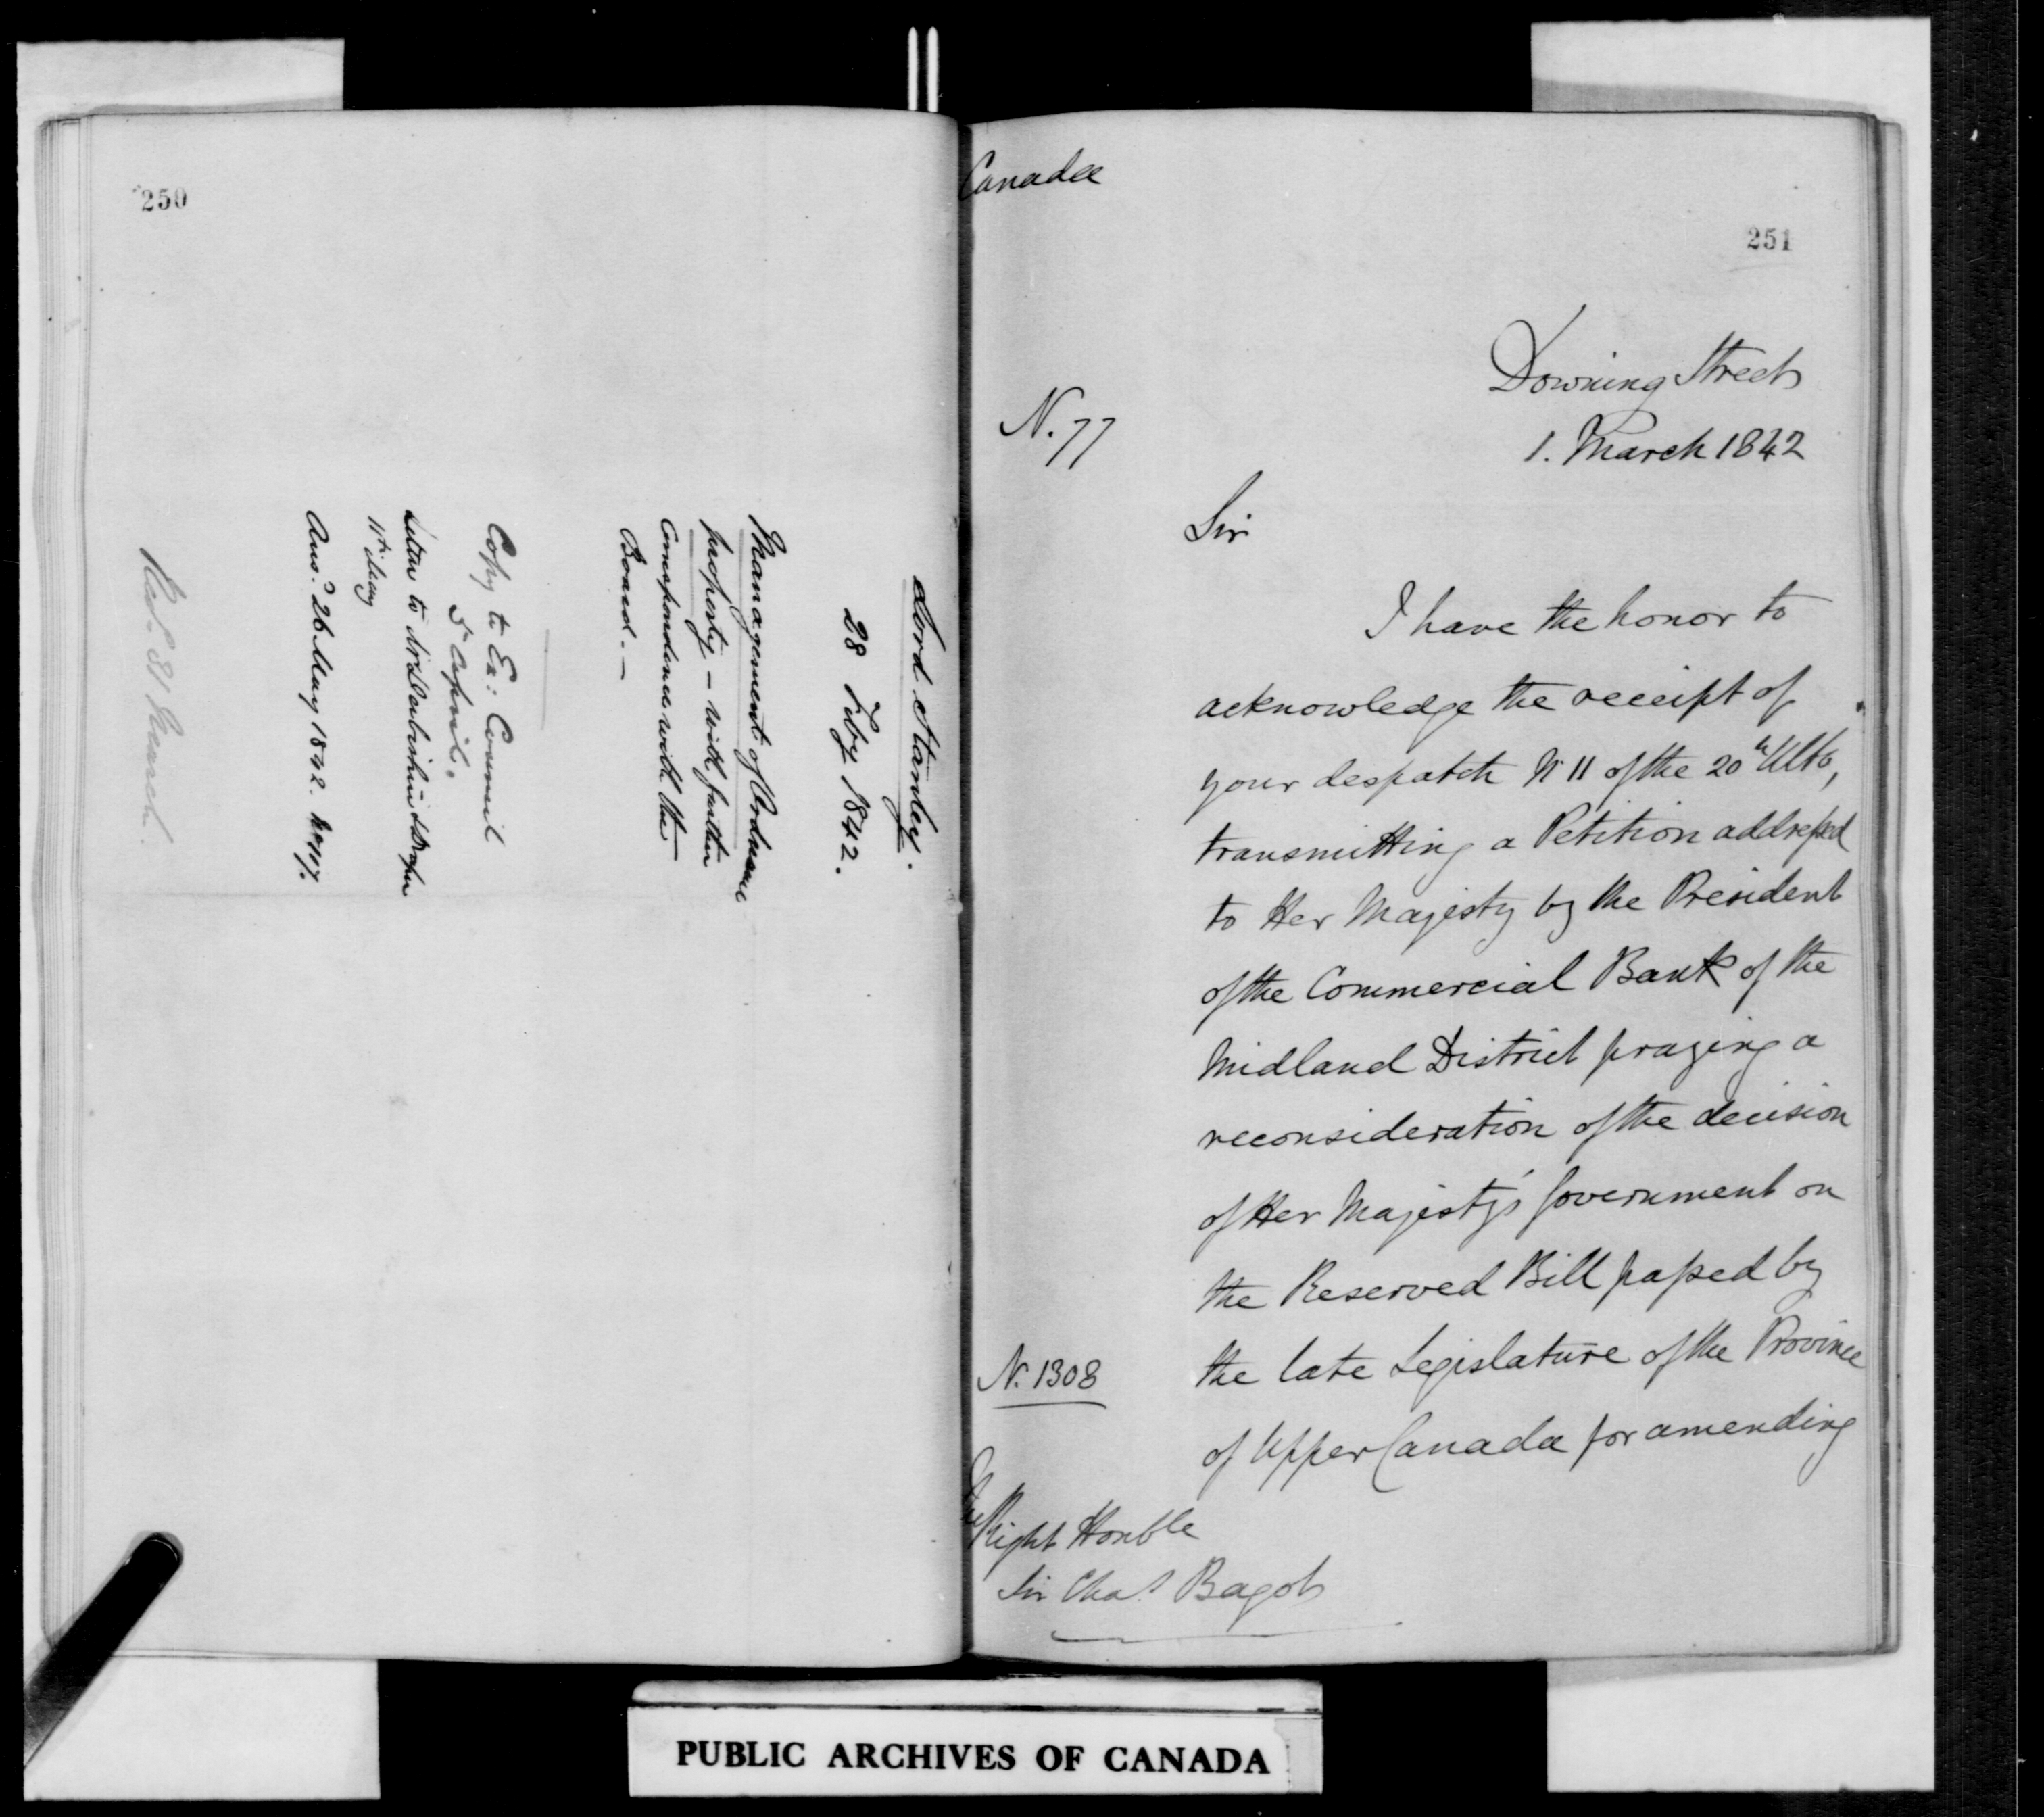 250
Lord Stanley.
28 Feby 1842.
Management of Ordnance
property – with further
Correspondence with the
Board. –
Copy to Ex: Council
5 April.
Letter to
11th May
Ansd. 26 May 1842.
Rec. 31 March.
Canada
251
Downing Street
N. 77
1. March 1842
Sir
I have the honor to
acknowledge the receipt of
your despatch No 11 of the 20th Ulto,
transmitting a Petition addressed
to Her Majesty by the President
of the Commercial Bank of the
Midland District praying a
reconsideration of the decision
of Her Majesty's Government on
the Reserved Bill passed by
the late Legislature of the Province
N. 1308
of Upper Canada for amending
The Right Honble
Sir Chas Bagot
PUBLIC ARCHIVES OF CANADA